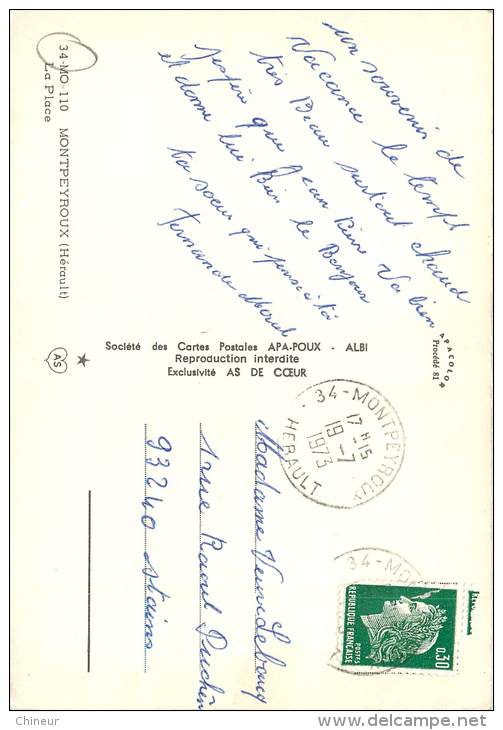 34-MO-110 MONTPEYROUX (Hérault)
La Place
un souvenir de
Vacance le temps
très Beau surtout chaud
J'espère que Jean Pierre Va bien
et donne lui Bien le Bonjour
ta soeur qui pense à toi
Fernande
APACOLOR
Procédé 81
Société des Cartes Postales APA-POUX - ALBI
Reproduction interdite
Exclusivité AS DE CŒUR
AS
34-MONTPEYROUX
17H15
19-7
1973
HERAULT
Madame
1 rue Raoul
93240 Stains
34-MO
RÉPUBLIQUE FRANÇAISE
POSTES
0,30
Chineur
www.delcampe.net